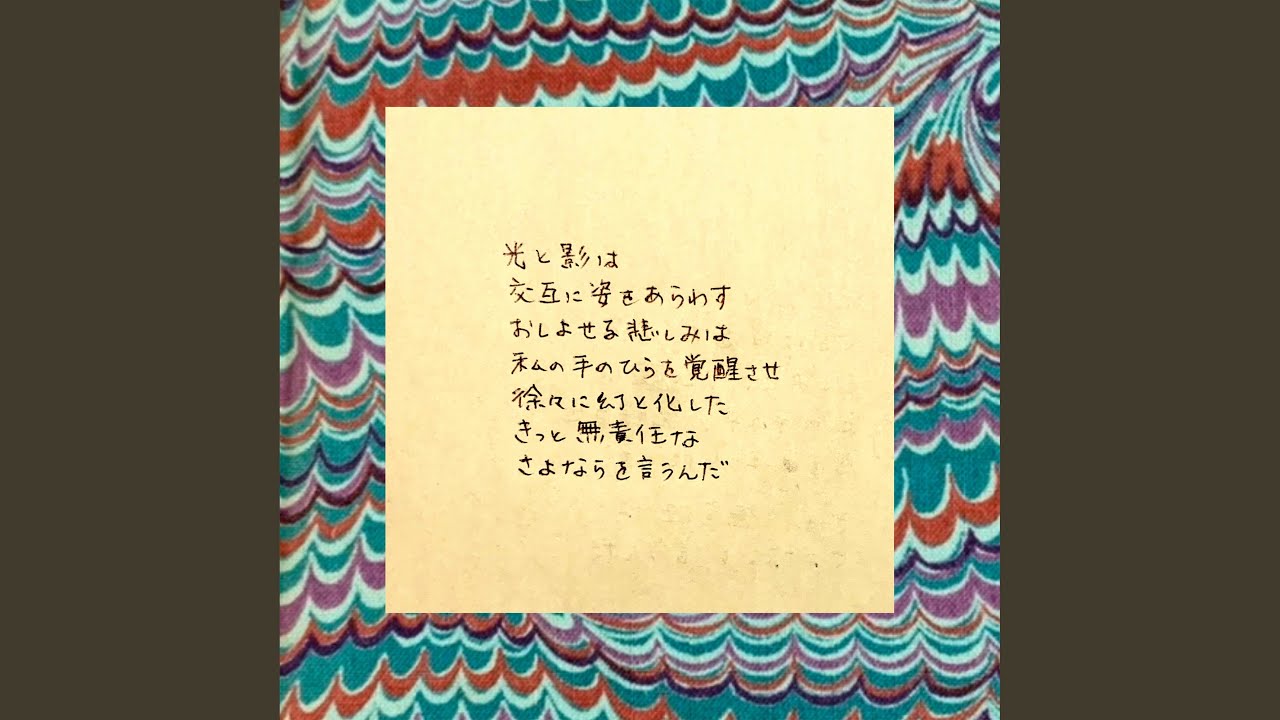 光と影は
交互に姿をあらわす
おしよせる悲しみは
私の手のひらを覚醒させ
徐々に幻と化した
きっと無責任な
さよならを言うんだ